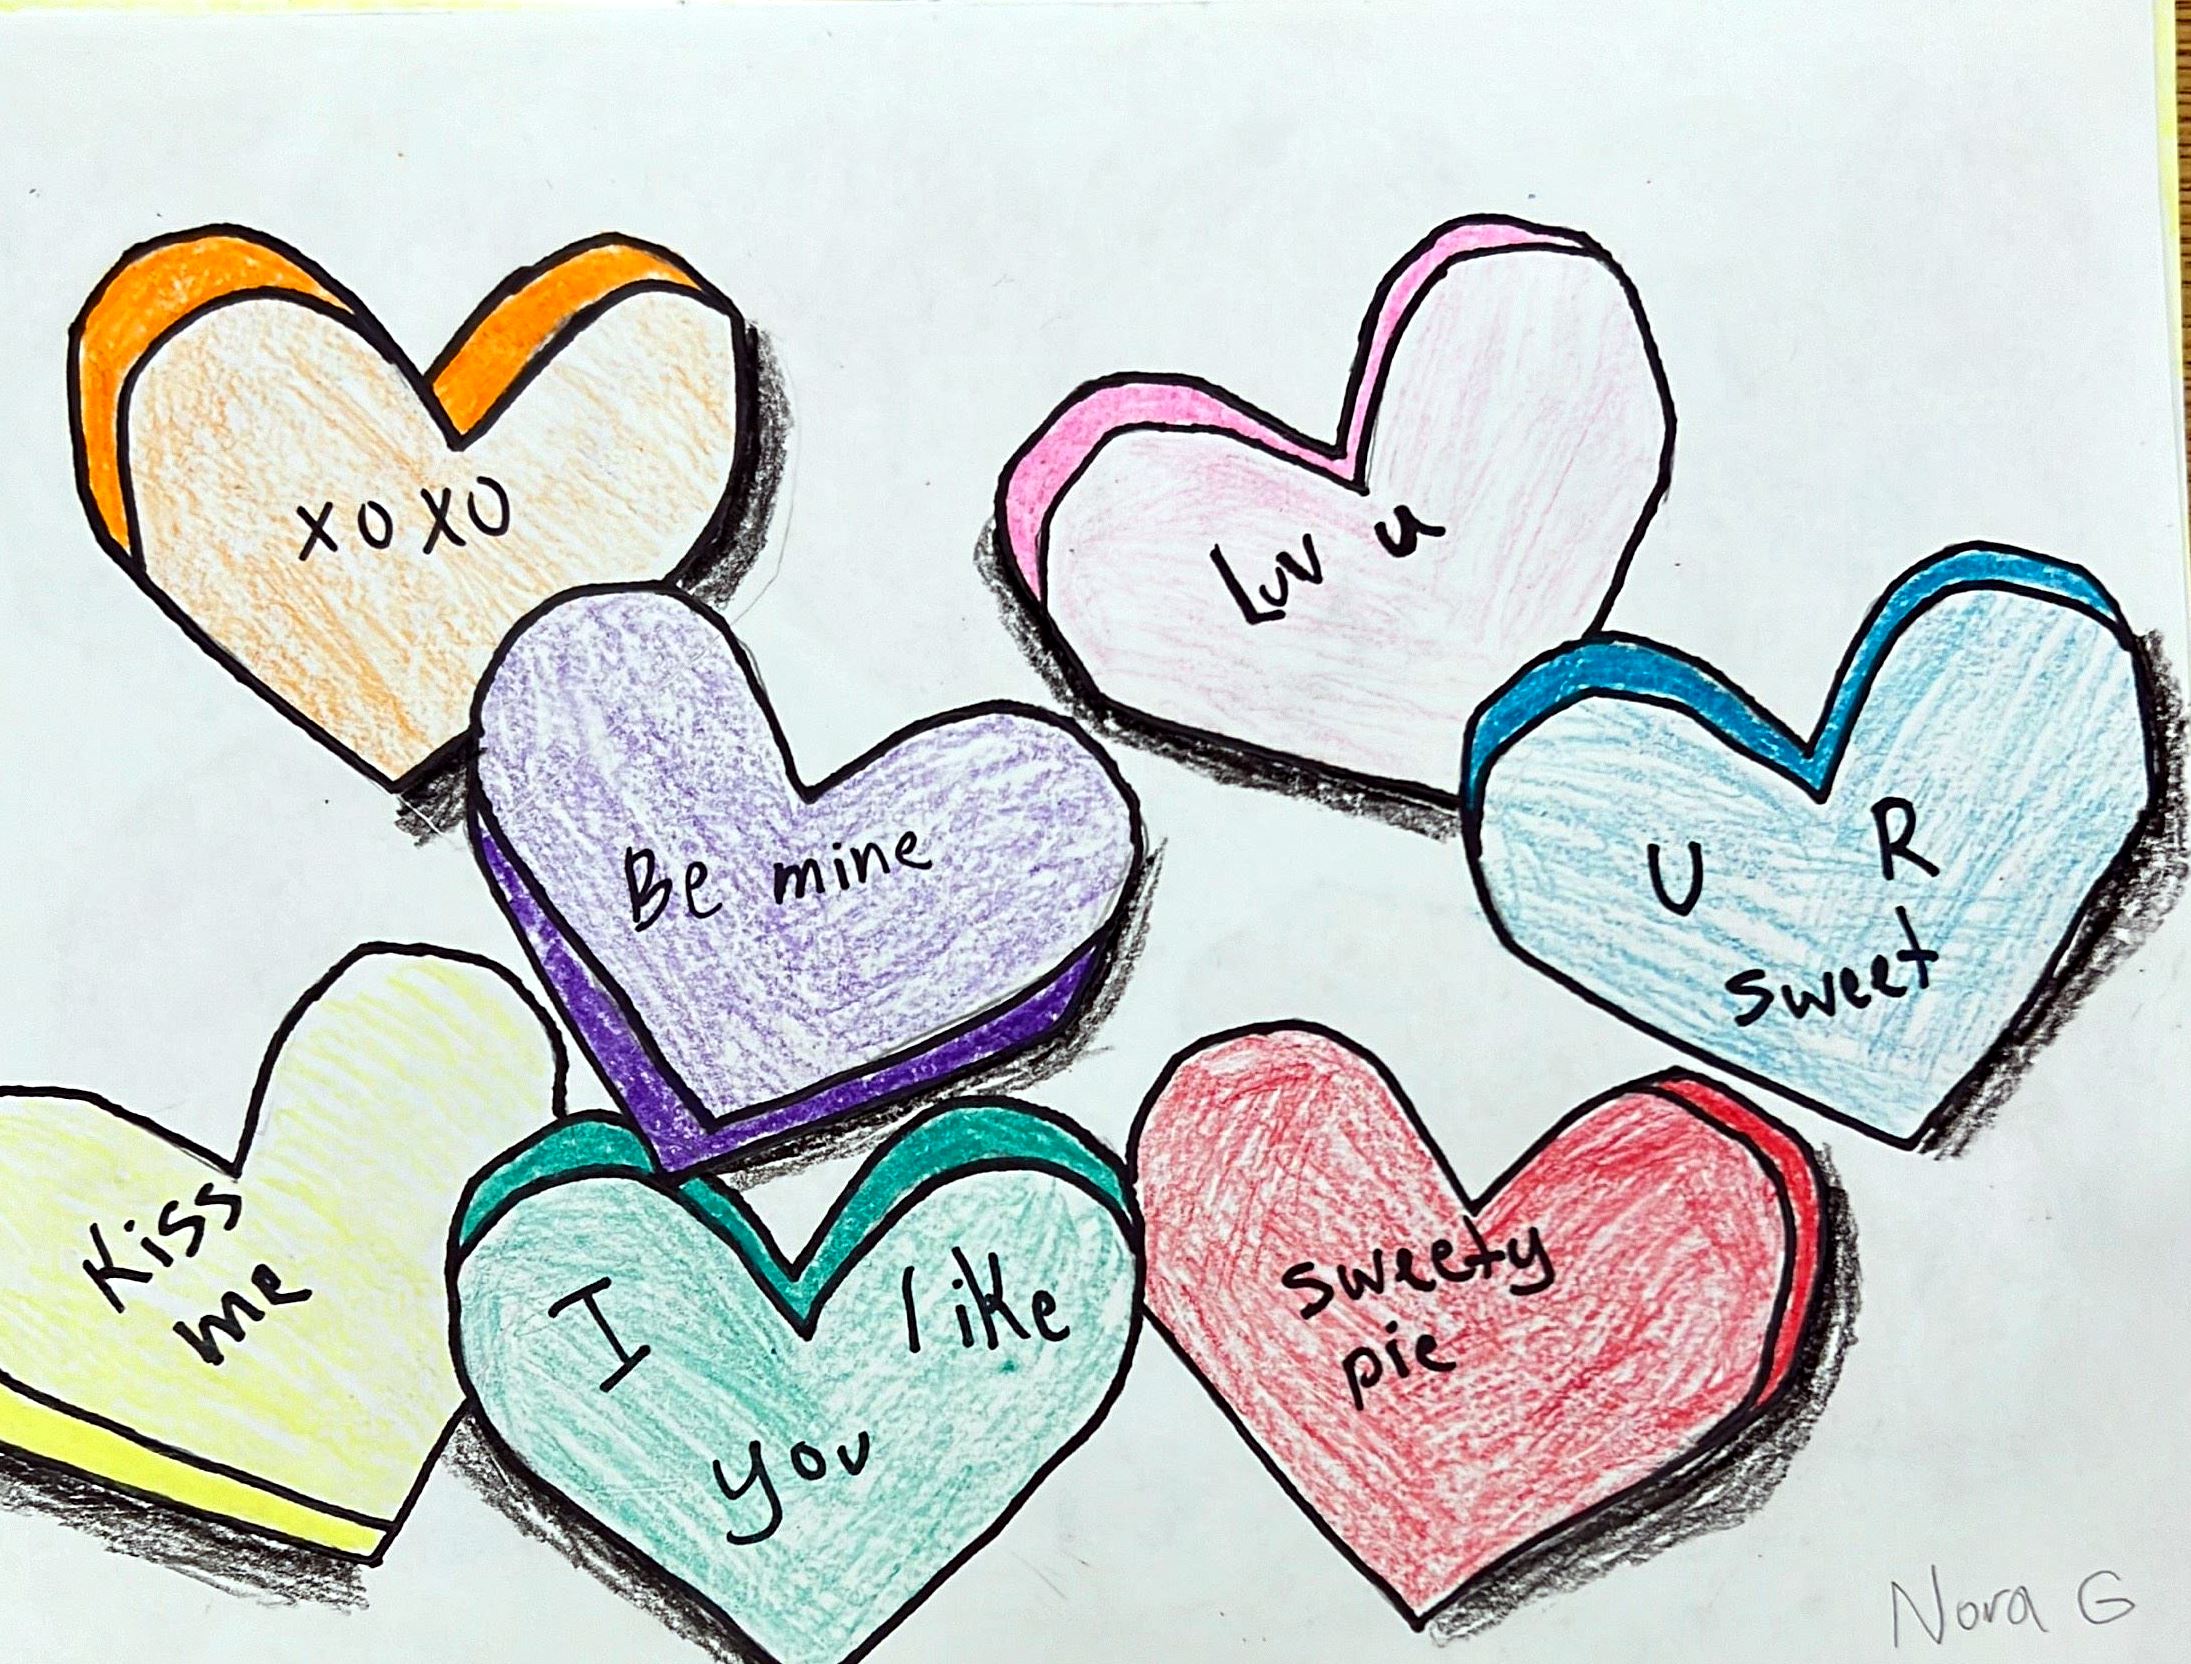 XOXO
Luv u
Be mine
U R
sweet
Kiss
me
I like
you
sweety
pie
Nora G